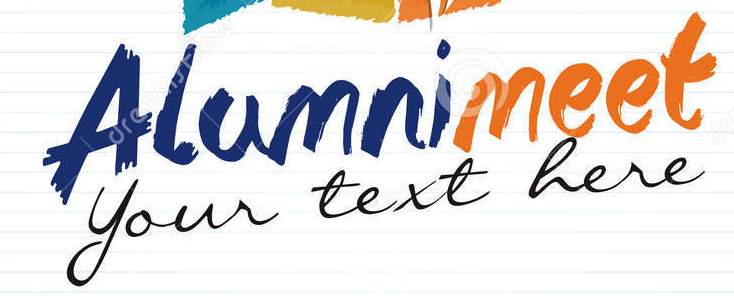 Alumnimeet
your text here